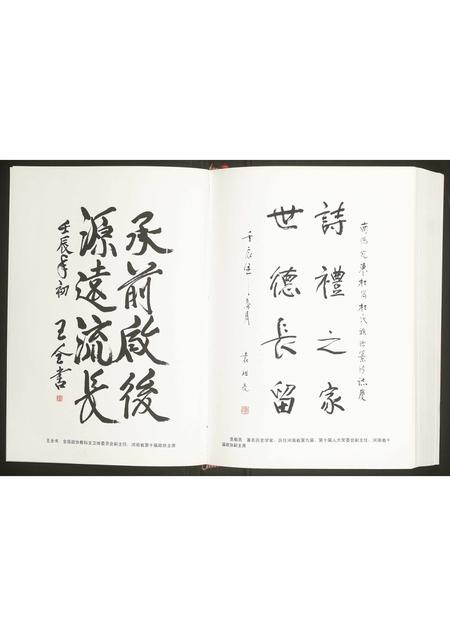 承前啟後
源遠流長
壬辰年初
王全書
王全书 全国政协教科文卫体委员会副主任、河南省第十届政协主席
詩禮之家
世德長留
袁祖亮
袁祖亮 著名历史学家，历任河南省第九届、第十届人大常委会副主任，河南省十
届政协副主席